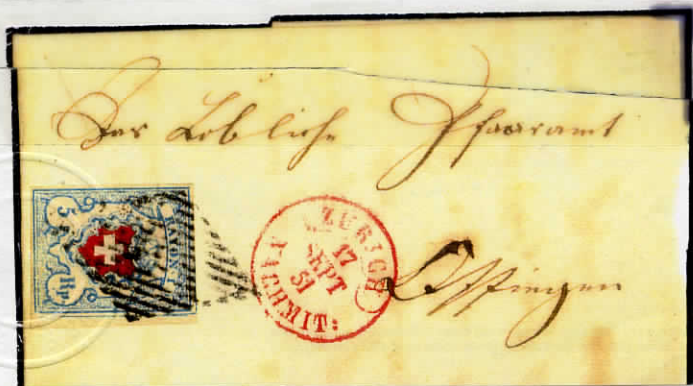 Das Löbliche Pfarramt
5 RAYON I
Rp.
ZÜRICH
17
SEPT
51
NACHMIT:
Ossingen